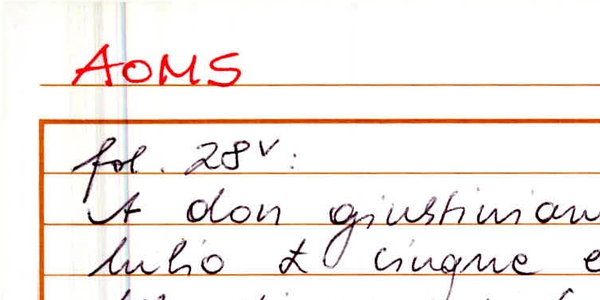 AOMS
fol. 28v:
A don giustinian
lulio t cinque e